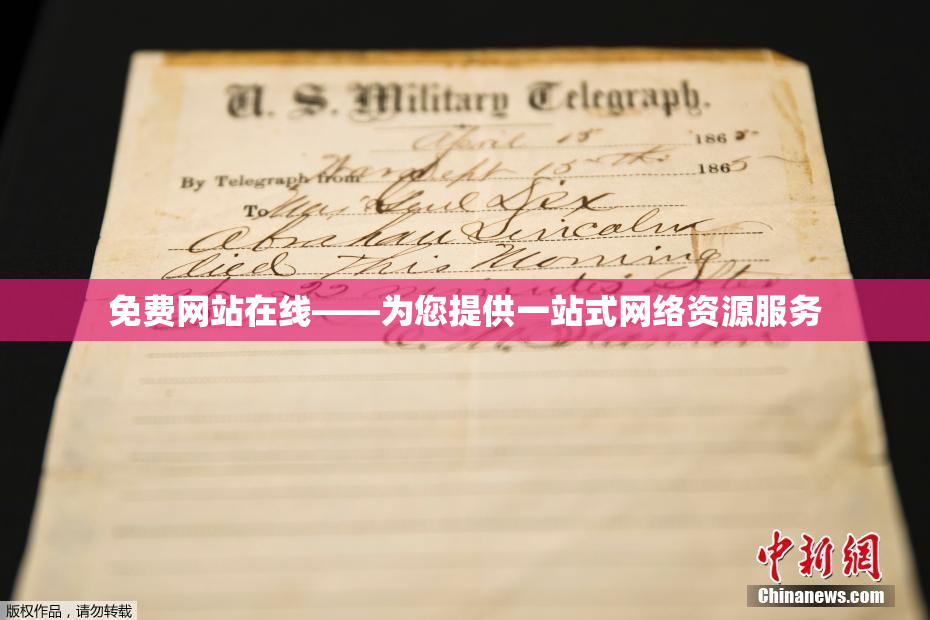 U. S. Military Telegraph.
April 15 1865
By Telegraph from War Dept 15th 1865
To Maj Genl Dix
Abraham Lincoln
died This Morning
at 22 minutes after
免费网站在线——为您提供一站式网络资源服务
E. M. Stanton
中新网
Chinanews.com
版权作品，请勿转载